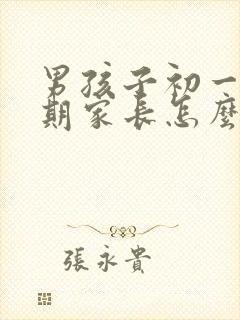 男孩子初一
期家长怎麼
張永貴